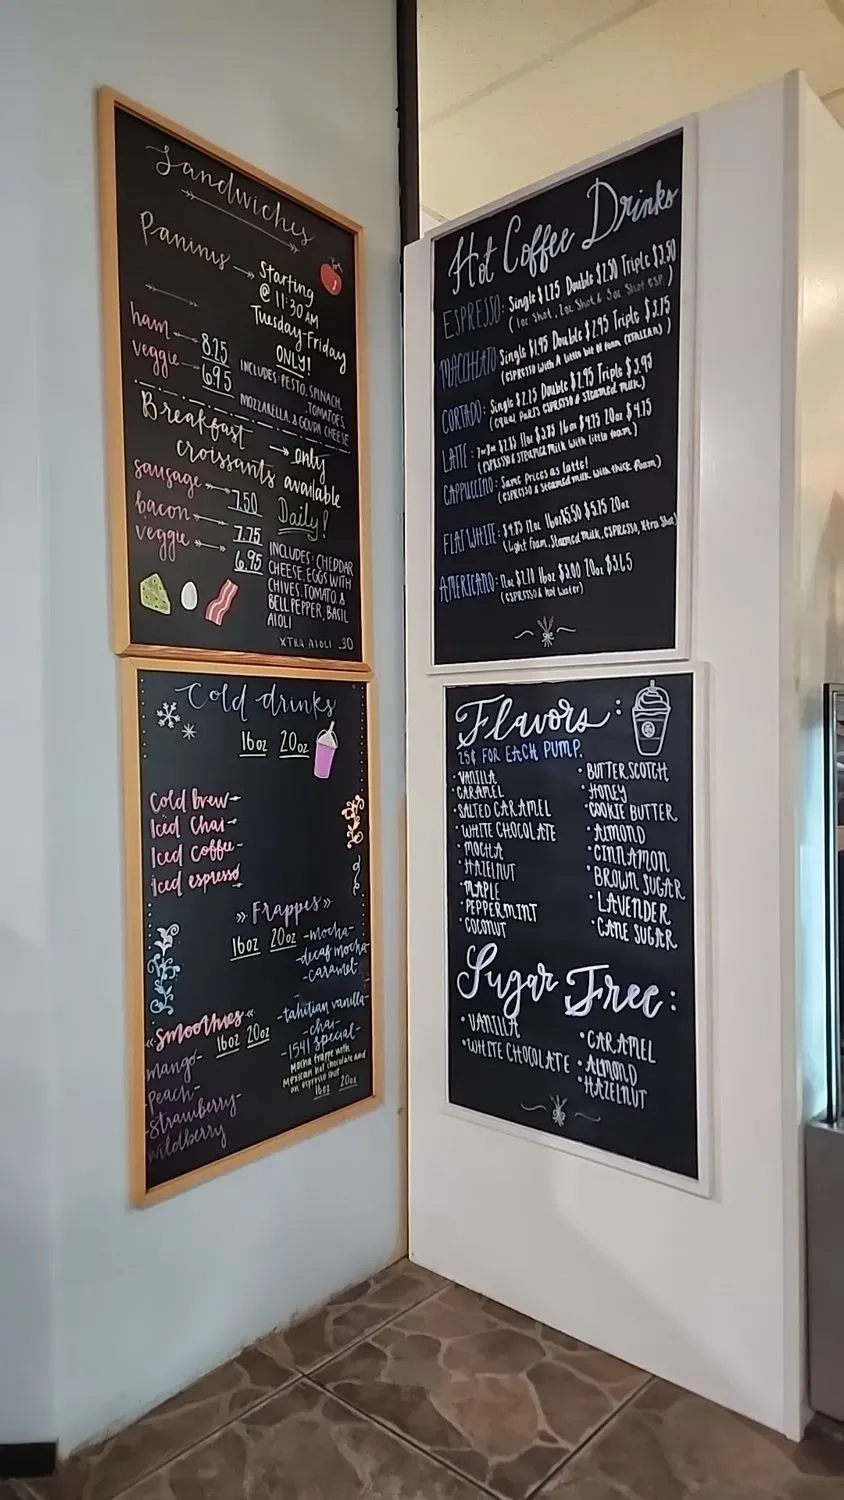 Sandwiches
Paninis
Starting
@ 11:30 AM
Tuesday-Friday
ONLY!
ham 8.25
veggie 6.95
INCLUDES: PESTO, SPINACH,
TOMATOES,
MOZZARELLA, & GOUDA CHEESE
Breakfast
croissants
only
available
Daily!
sausage 7.50
bacon 7.75
veggie 6.95
INCLUDES: CHEDDAR
CHEESE, EGGS WITH
CHIVES, TOMATO &
BELL PEPPER, BASIL
AIOLI
XTRA AIOLI .30
Cold drinks
16oz 20oz
Cold brew-
Iced Chai-
Iced coffee-
Iced espresso
Frappes
16oz 20oz
-mocha-
-decaf mocha-
-caramel-
-tahitian vanilla-
-chai-
-1541 special-
Mocha frappe with
Mexican hot chocolate and
an espresso shot
16oz 20oz
Smoothies
16oz 20oz
mango-
-peach-
-strawberry-
wildberry
Hot Coffee Drinks
ESPRESSO: Single $1.25 Double $2.50 Triple $3.50
(1oz Shot, 2oz Shot & 3oz Shot ESP.)
MACCHIATO Single $1.95 Double $2.95 Triple $3.75
(ESPRESSO with A little bit of foam
CORTADO: Single $2.25 Double $2.95 Triple $3.95
(equal parts ESPRESSO & Steamed milk)
LATTE: $3.75 16oz $4.25 20oz $4.75
(ESPRESSO & STEAMED Milk with little foam)
CAPPUCCINO: Same prices as latte!
(ESPRESSO & Steamed milk, with thick foam)
FLAT WHITE: 12oz 16oz $5.50 $5.75 20oz
(Light foam, Steamed milk, ESPRESSO, Xtra Shot
AMERICANO: 12oz 16oz $3.00 20oz
(ESPRESSO & hot water)
Flavors:
25¢ FOR EACH PUMP.
• VANILLA
• CARAMEL
• SALTED CARAMEL
• WHITE CHOCOLATE
• MOCHA
• HAZELNUT
• MAPLE
• PEPPERMINT
• COCONUT
• BUTTERSCOTCH
• HONEY
• COOKIE BUTTER
• ALMOND
• CINNAMON
• BROWN SUGAR
• LAVENDER
• CANE SUGAR
Sugar Free:
• VANILLA
• WHITE CHOCOLATE
• CARAMEL
• ALMOND
• HAZELNUT